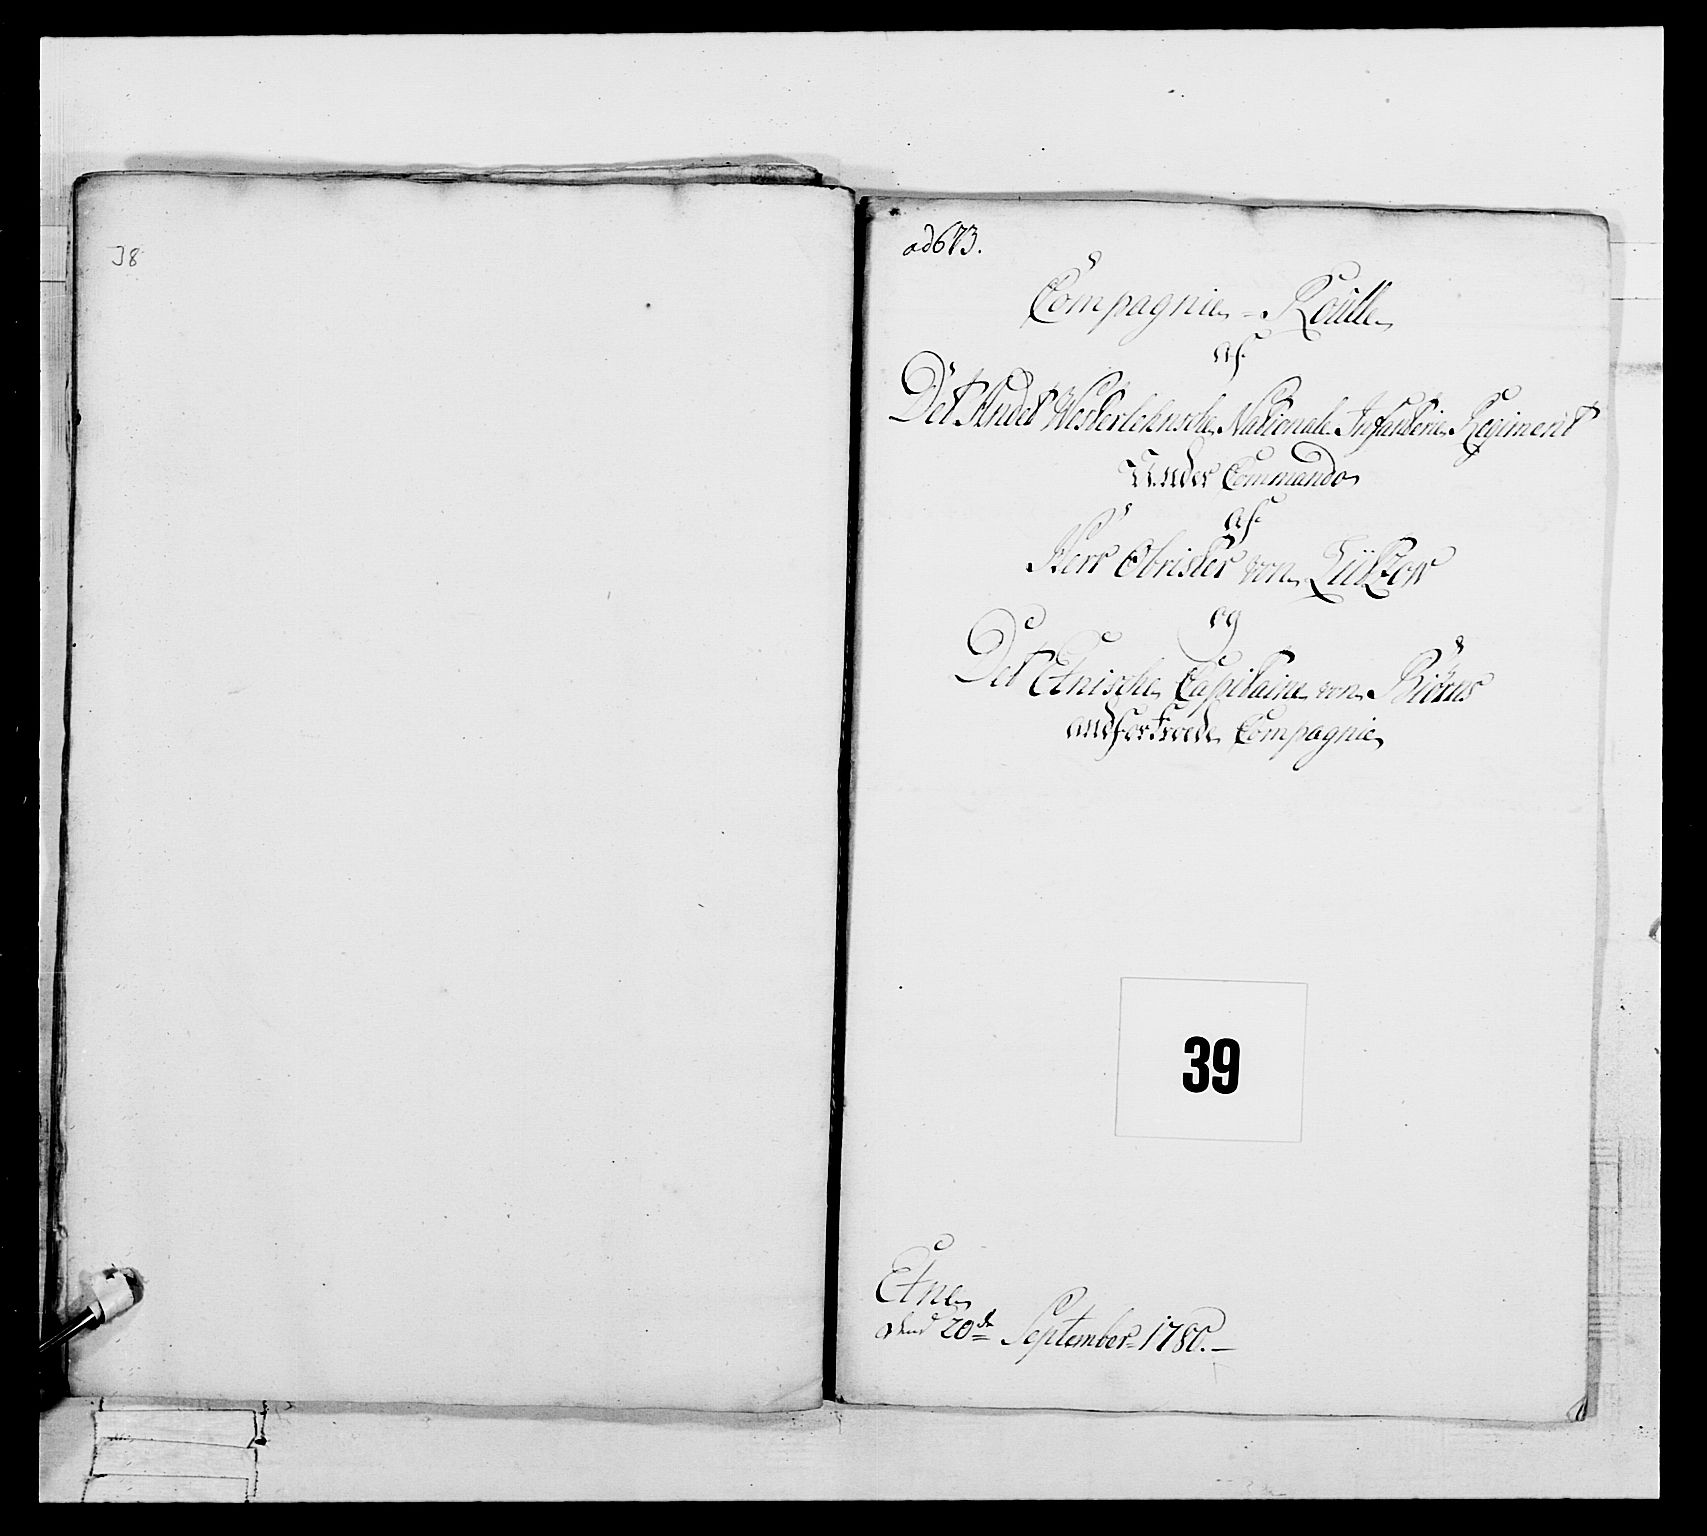 38
ad 673.
Compagnie-Roulle
af
Det Andet Westerlehnsche Nationale Infanterie Regiment
Under Commando
af
Herr Obrister von Lützow
og
Det Etnische Capitaine von Kröws
andfortroede Compagnie
39
Etne
dend 20de September 1780.